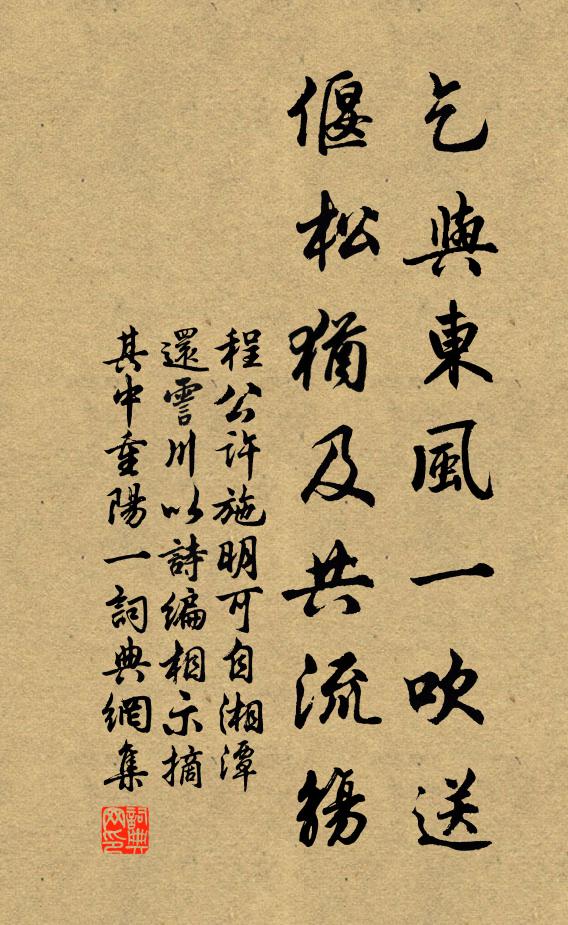 乞與東風一吹送
偃松猶及共流觴
程公許施明可自湘潭
還霅川以詩編相示摘
其中重陽一詞典網集
詞典
网印